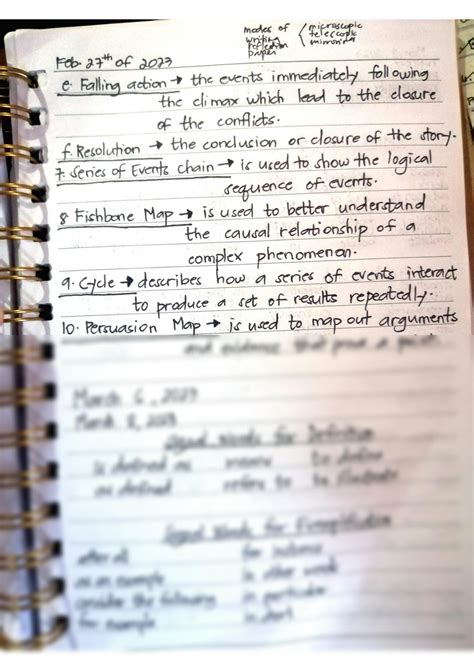 modes of
writing
reflection
paper
microscopic
telescopic
Feb. 27th of 2023
e. Falling action → the events immediately following
the climax which lead to the closure
of the conflicts.
f. Resolution → the conclusion or closure of the story.
7. Series of Events chain → is used to show the logical
sequence of events.
8 Fishbone Map → is used to better understand
the causal relationship of a
complex phenomenon.
9. Cycle → describes how a series of events interact
to produce a set of results repeatedly.
10. Persuasion Map → is used to map out arguments
and evidence that prove a point.
is defined as
to define
as defined
refers to
to illustrate
after all
for instance
as an example
in other words
consider the following
in particular
for example
in short